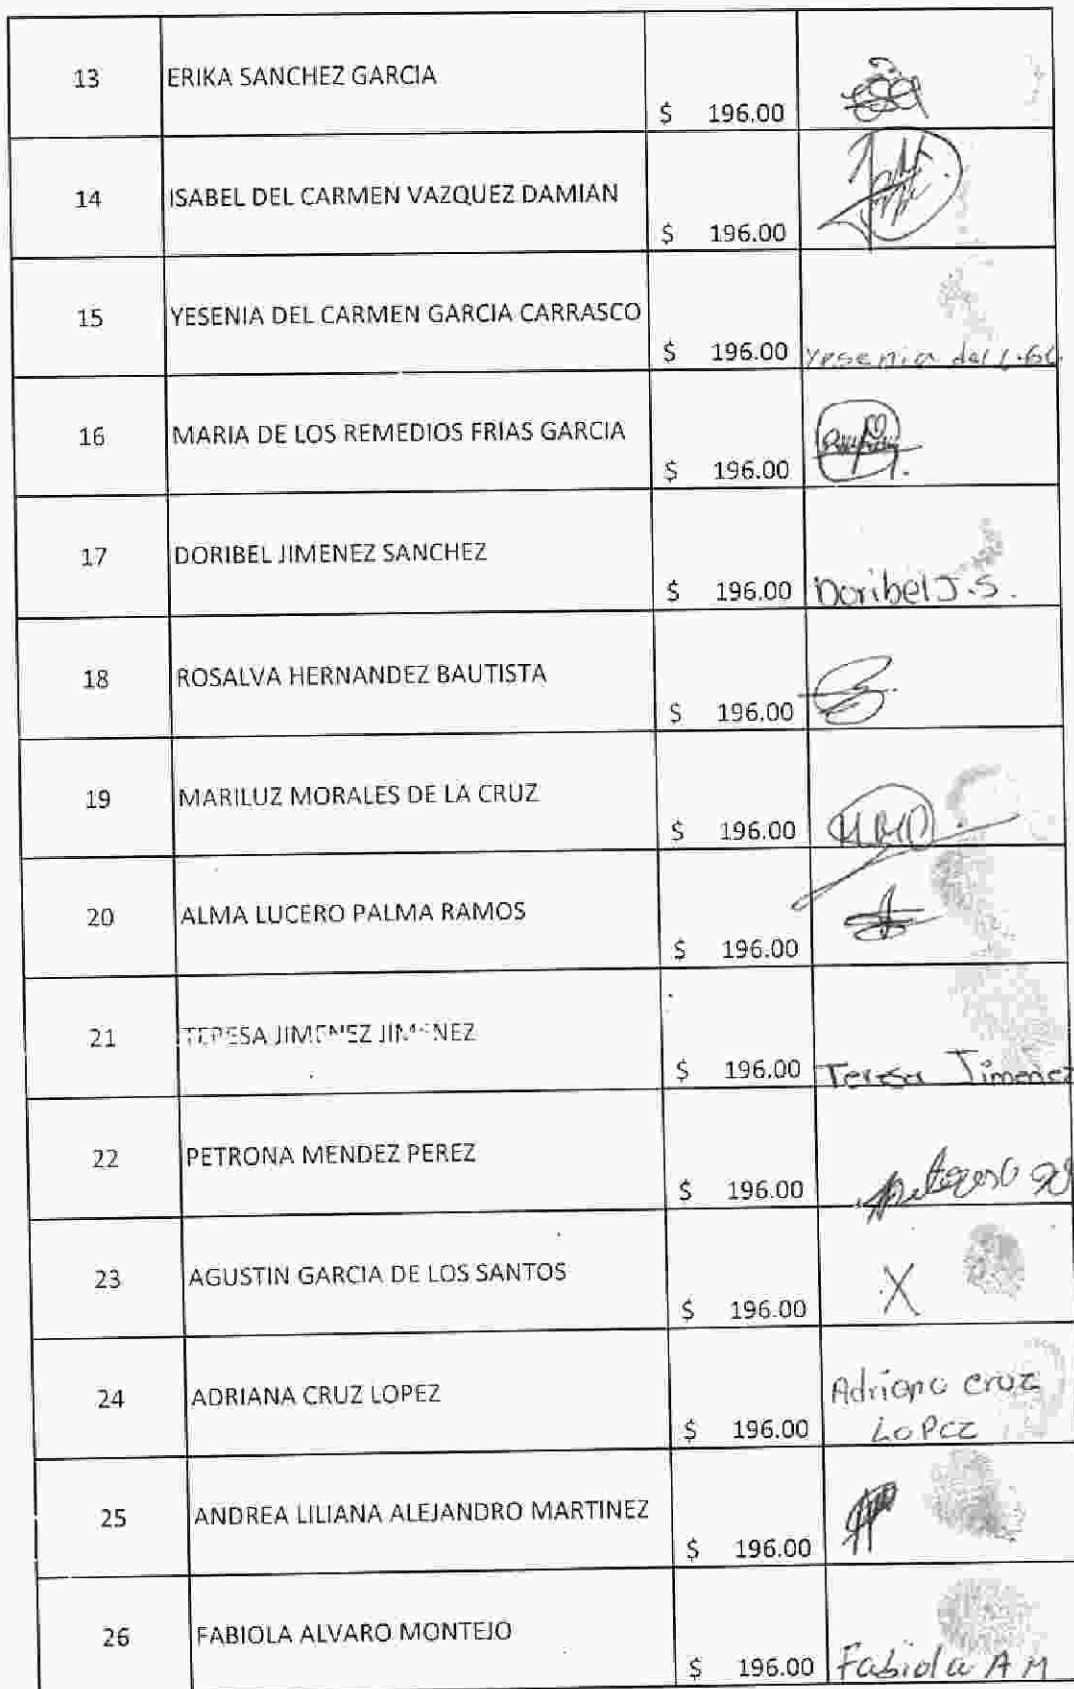 13 ERIKA SANCHEZ GARCIA $ 196.00
14 ISABEL DEL CARMEN VAZQUEZ DAMIAN $ 196.00
15 YESENIA DEL CARMEN GARCIA CARRASCO $ 196.00 Yesenia del
16 MARIA DE LOS REMEDIOS FRIAS GARCIA $ 196.00
17 DORIBEL JIMENEZ SANCHEZ $ 196.00 Doribel J.S.
18 ROSALVA HERNANDEZ BAUTISTA $ 196.00
19 MARILUZ MORALES DE LA CRUZ $ 196.00
20 ALMA LUCERO PALMA RAMOS $ 196.00
21 TERESA JIMENEZ JIMENEZ $ 196.00 Teresa Jimenez
22 PETRONA MENDEZ PEREZ $ 196.00
23 AGUSTIN GARCIA DE LOS SANTOS $ 196.00 X
24 ADRIANA CRUZ LOPEZ $ 196.00 Adriana cruz
LOPEZ
25 ANDREA LILIANA ALEJANDRO MARTINEZ $ 196.00
26 FABIOLA ALVARO MONTEJO $ 196.00 Fabiola A M